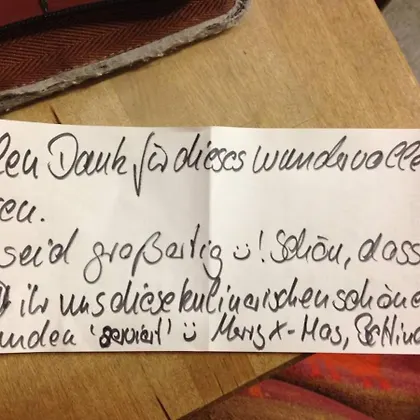 len Dank für dieses wundervolle
en.
seid großartig ü! Schön, dass
ihr uns diese kulinarischen schöne
unden 'serviert' ü Merry X-Mas, Bettina